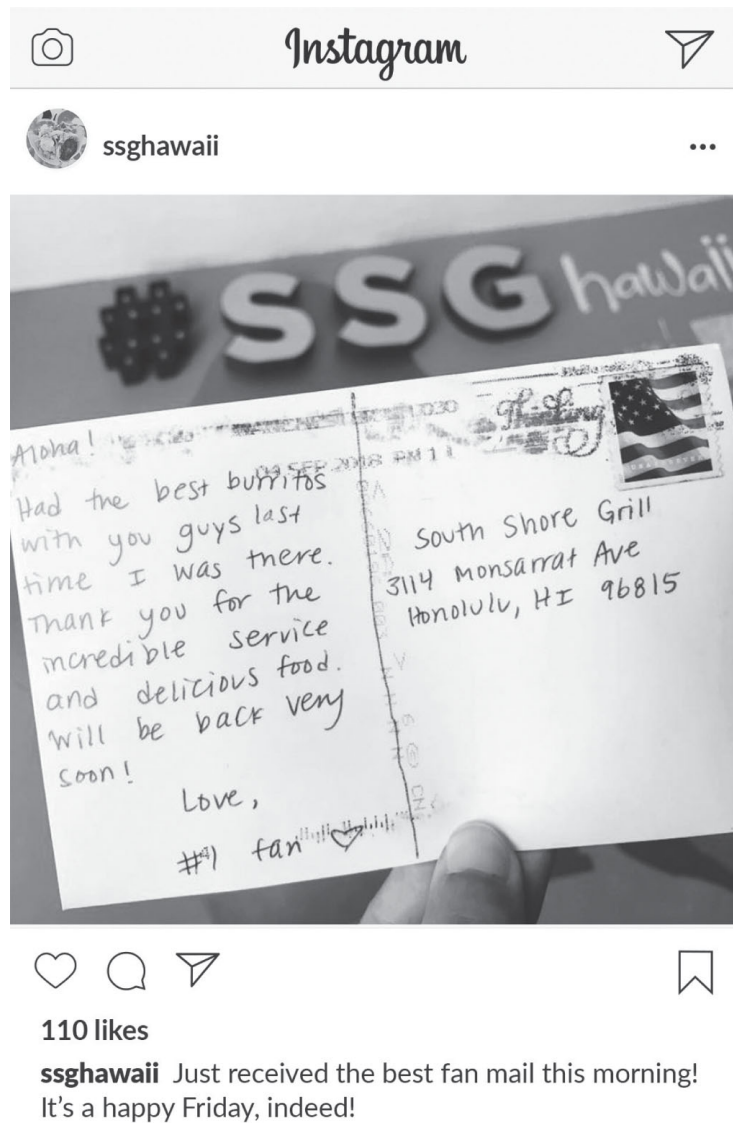 Instagram
ssghawaii
#SSG hawaii
Aloha!
Had the best burritos
with you guys last
time I was there.
Thank you for the
incredible service
and delicious food.
Will be back very
soon!
Love,
#1 fan
03 SEP 2018 PM 1
South Shore Grill
3114 Monsarrat Ave
Honolulu, HI 96815
110 likes
ssghawaii Just received the best fan mail this morning!
It's a happy Friday, indeed!